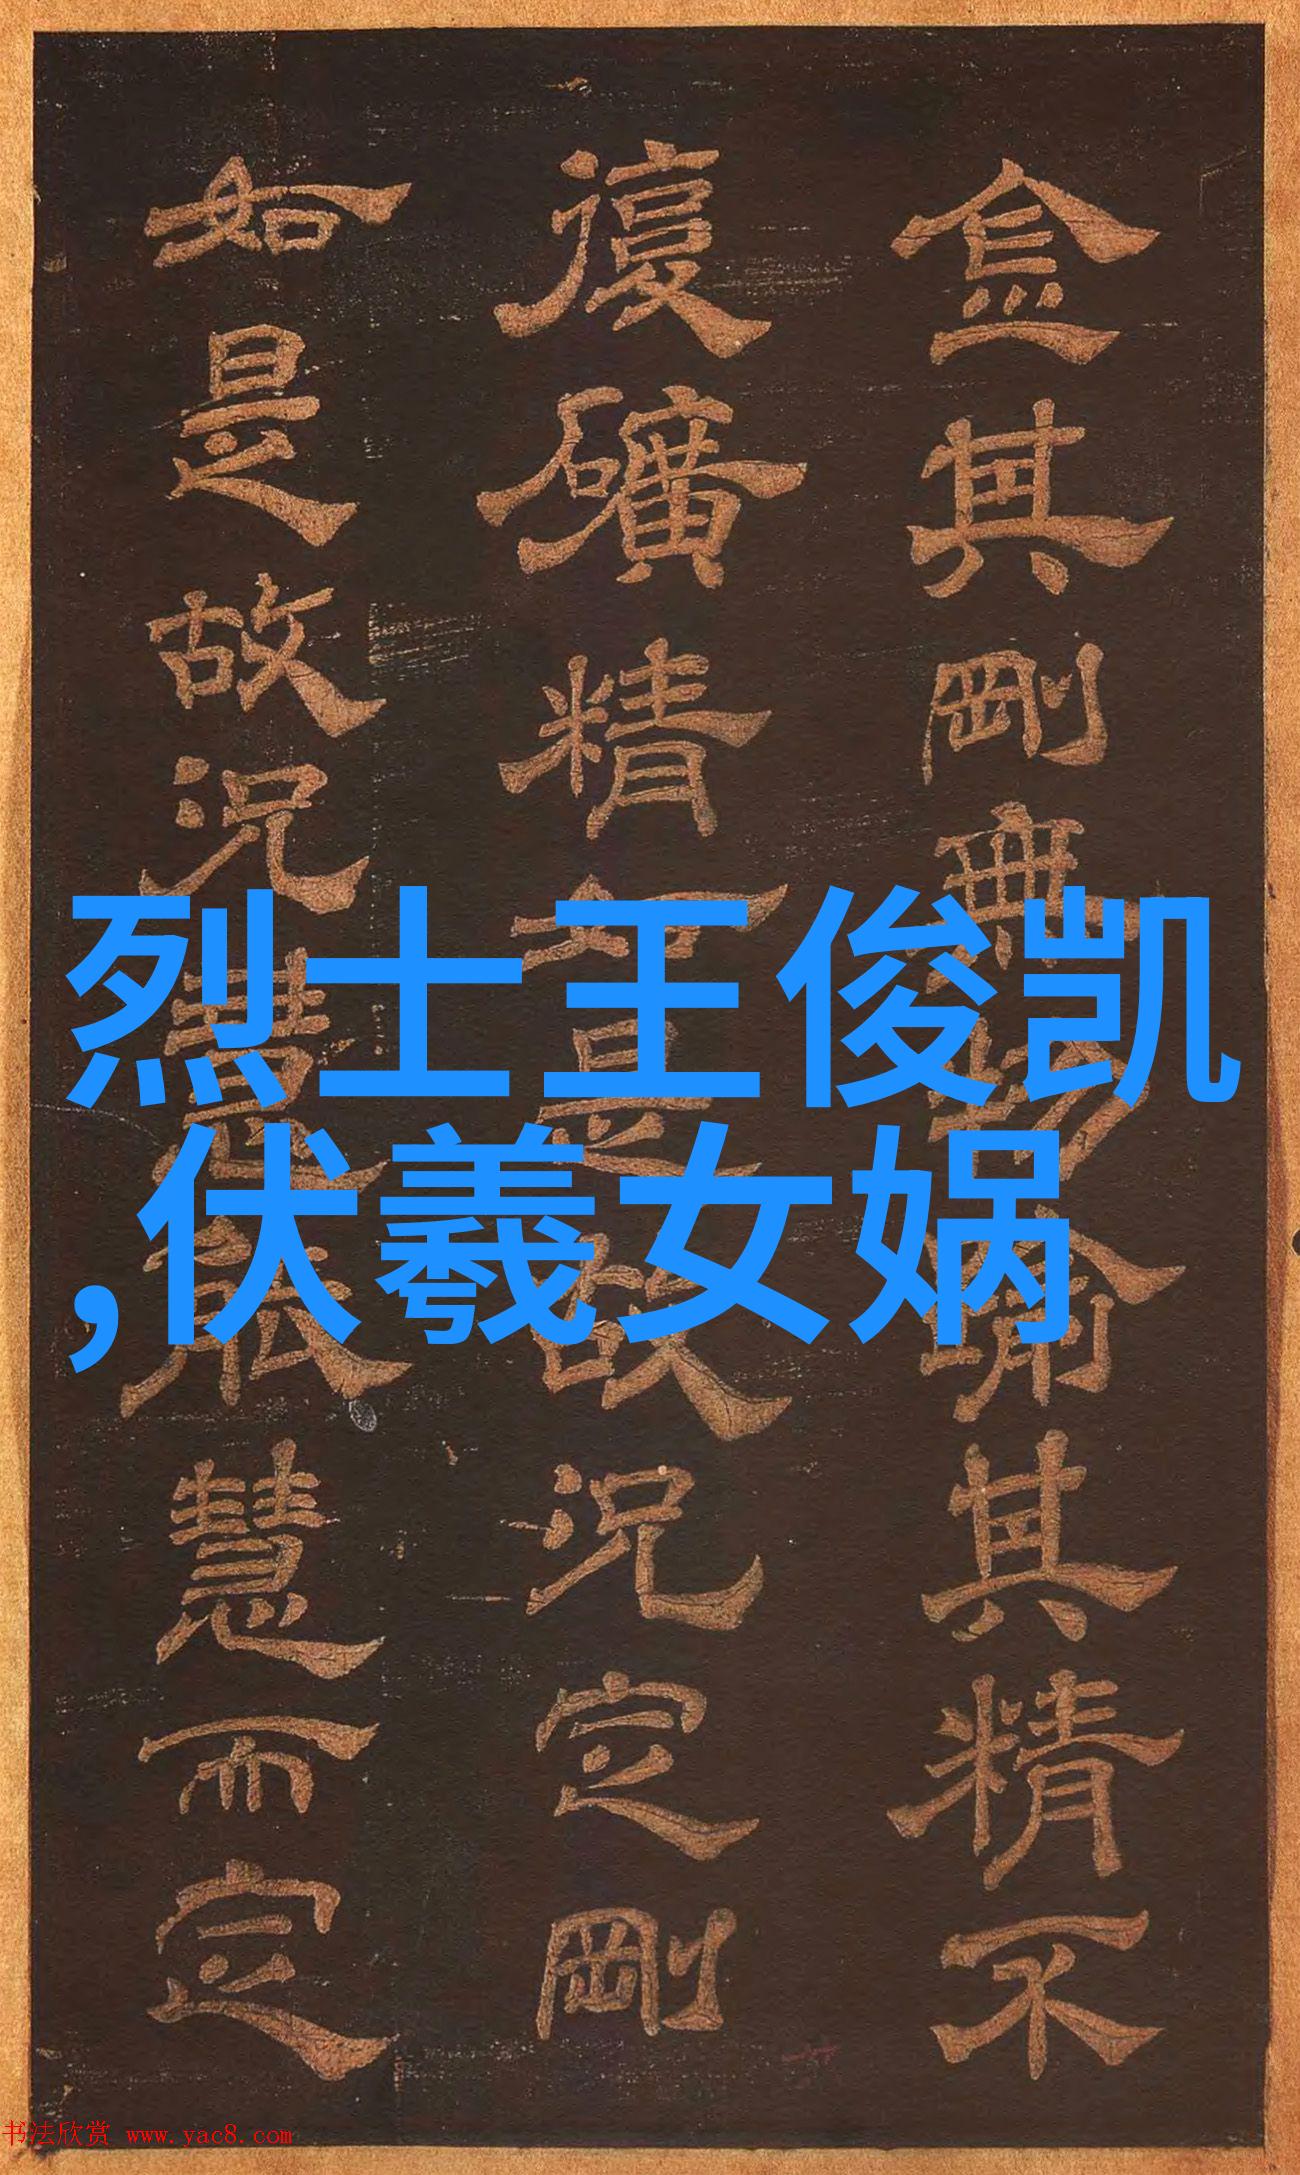 金其剛無物喻其精不
復礦精如是故況定剛
如是故況慧能慧而定
烈士王俊凯
,伏羲女娲
书法欣赏 www.yac8.com